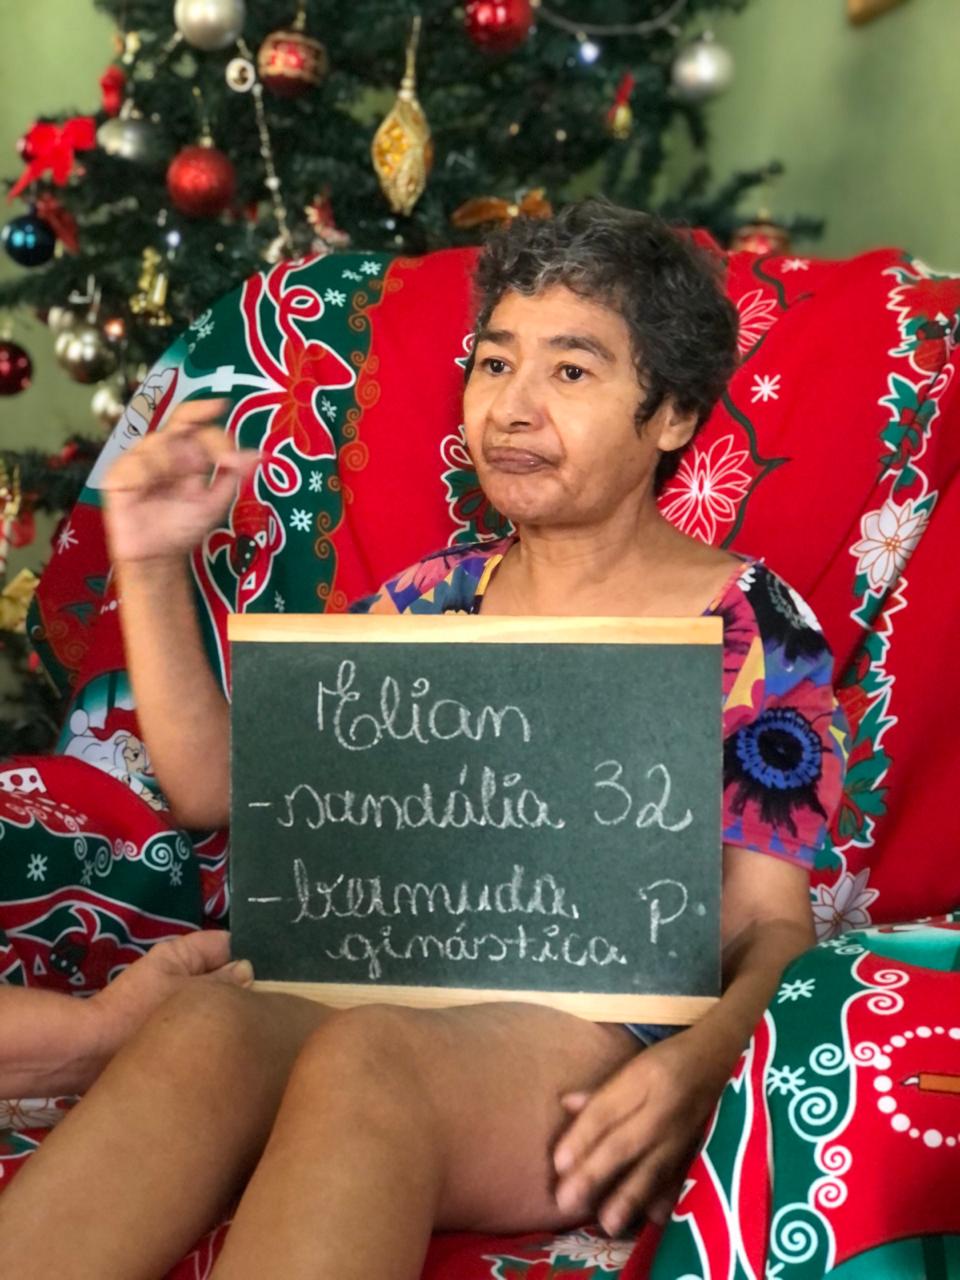 Elian
- sandália 32
- bermuda P.
ginástica